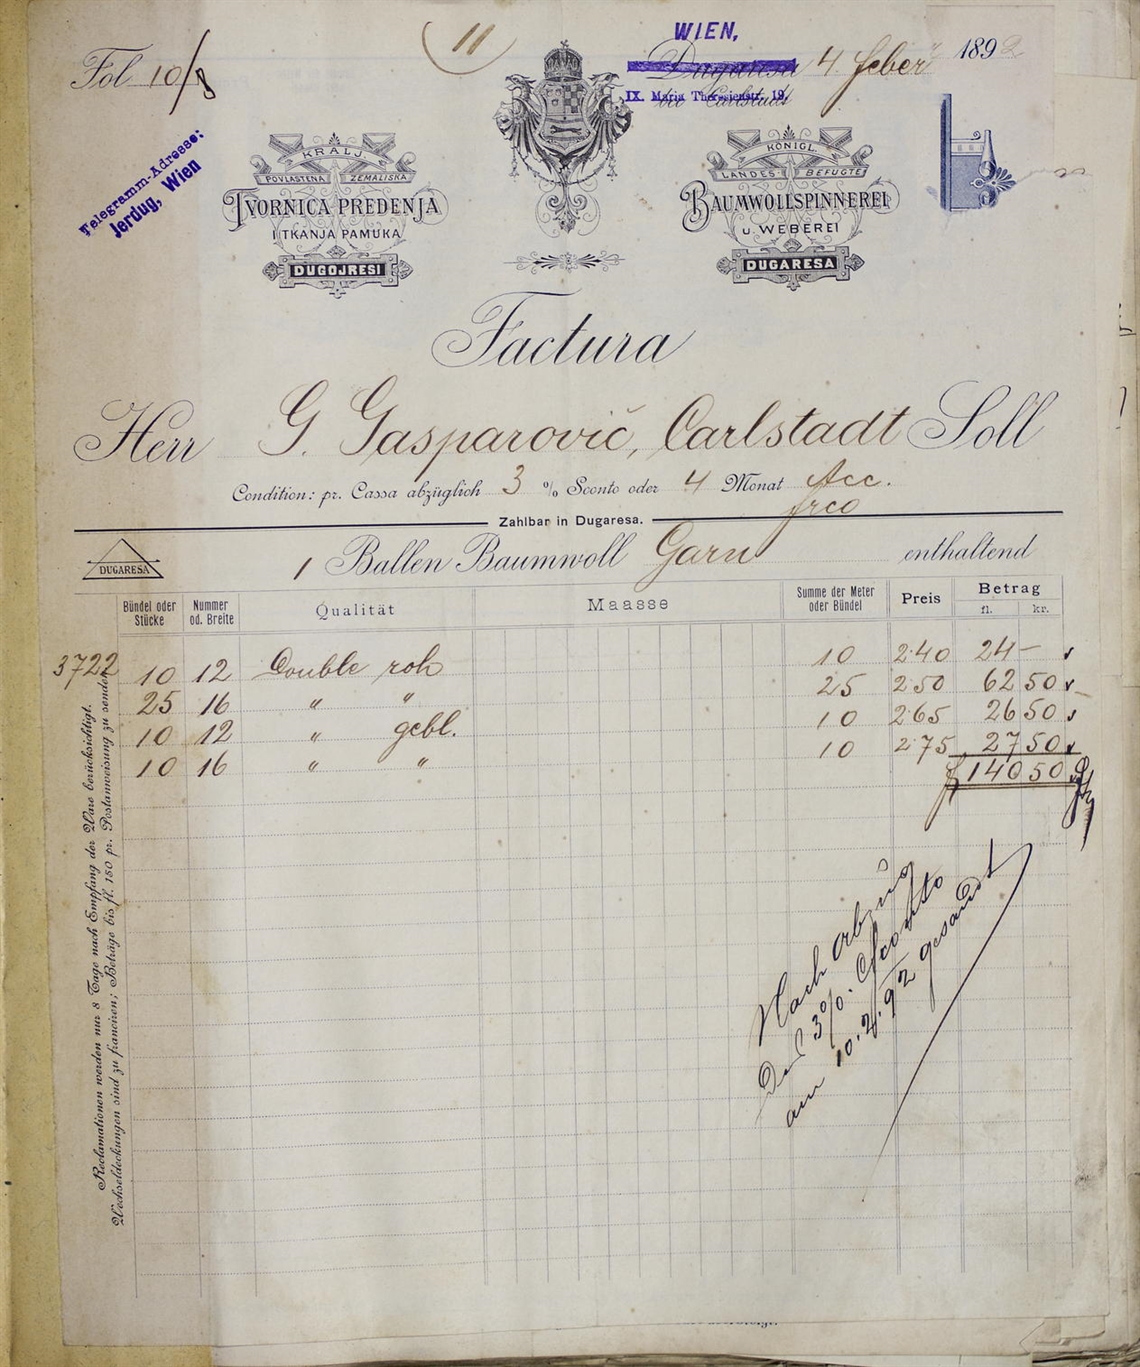 Fol 10/8
11
WIEN,
Dugaresa 4 Feber 1892
IX. Maria Theresienstr. 19.
bei Carlstadt
Telegramm-Adresse:
Jerdug, Wien
KRALJ.
POVLASTENA ZEMALISKA
TVORNICA PREDENJA
I TKANJA PAMUKA
DUGOJRESI
KÖNIGL.
LANDES- BEFUGTE
BAUMWOLLSPINNEREI
U. WEBEREI
DUGARESA
Factura
Herr G. Gasparovič, Carlstadt Soll
Condition: pr. Cassa abzüglich 3 % Sconto oder 4 Monat Acc.
frco
Zahlbar in Dugaresa.
DUGARESA
1 Ballen Baumwoll Garn enthaltend
Bündel oder Stücke Nummer od. Breite Qualität Maasse Summe der Meter oder Bündel Preis Betrag
fl. kr.
3722 10 12 Double roh 10 2·40 24 —
25 16 " " 25 2·50 62 50
10 12 " gebl. 10 2·65 26 50
10 16 " " 10 2·75 27 50
f 140 50
Nach abzug
3%. Sconto
am 10.2.92 gesandt
Reclamationen werden nur 8 Tage nach Empfang der Ware berücksichtigt.
Wechseldeckungen sind zu franciren; Beträge bis fl. 150 pr. Postanweisung zu senden.